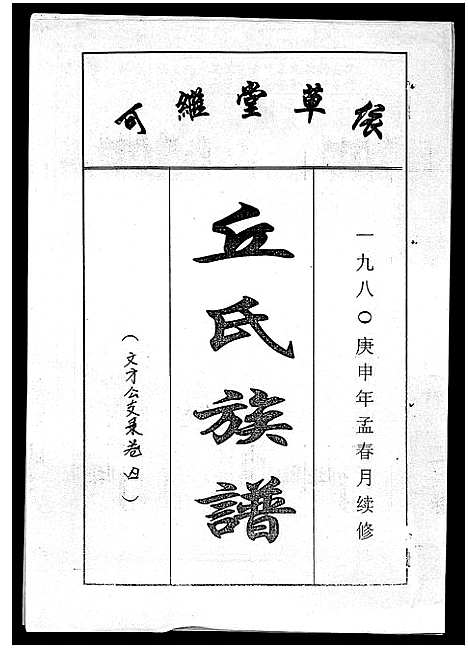 草堂維可
一九八〇庚申年孟春月续修
丘氏族譜
（文才公支系卷四）